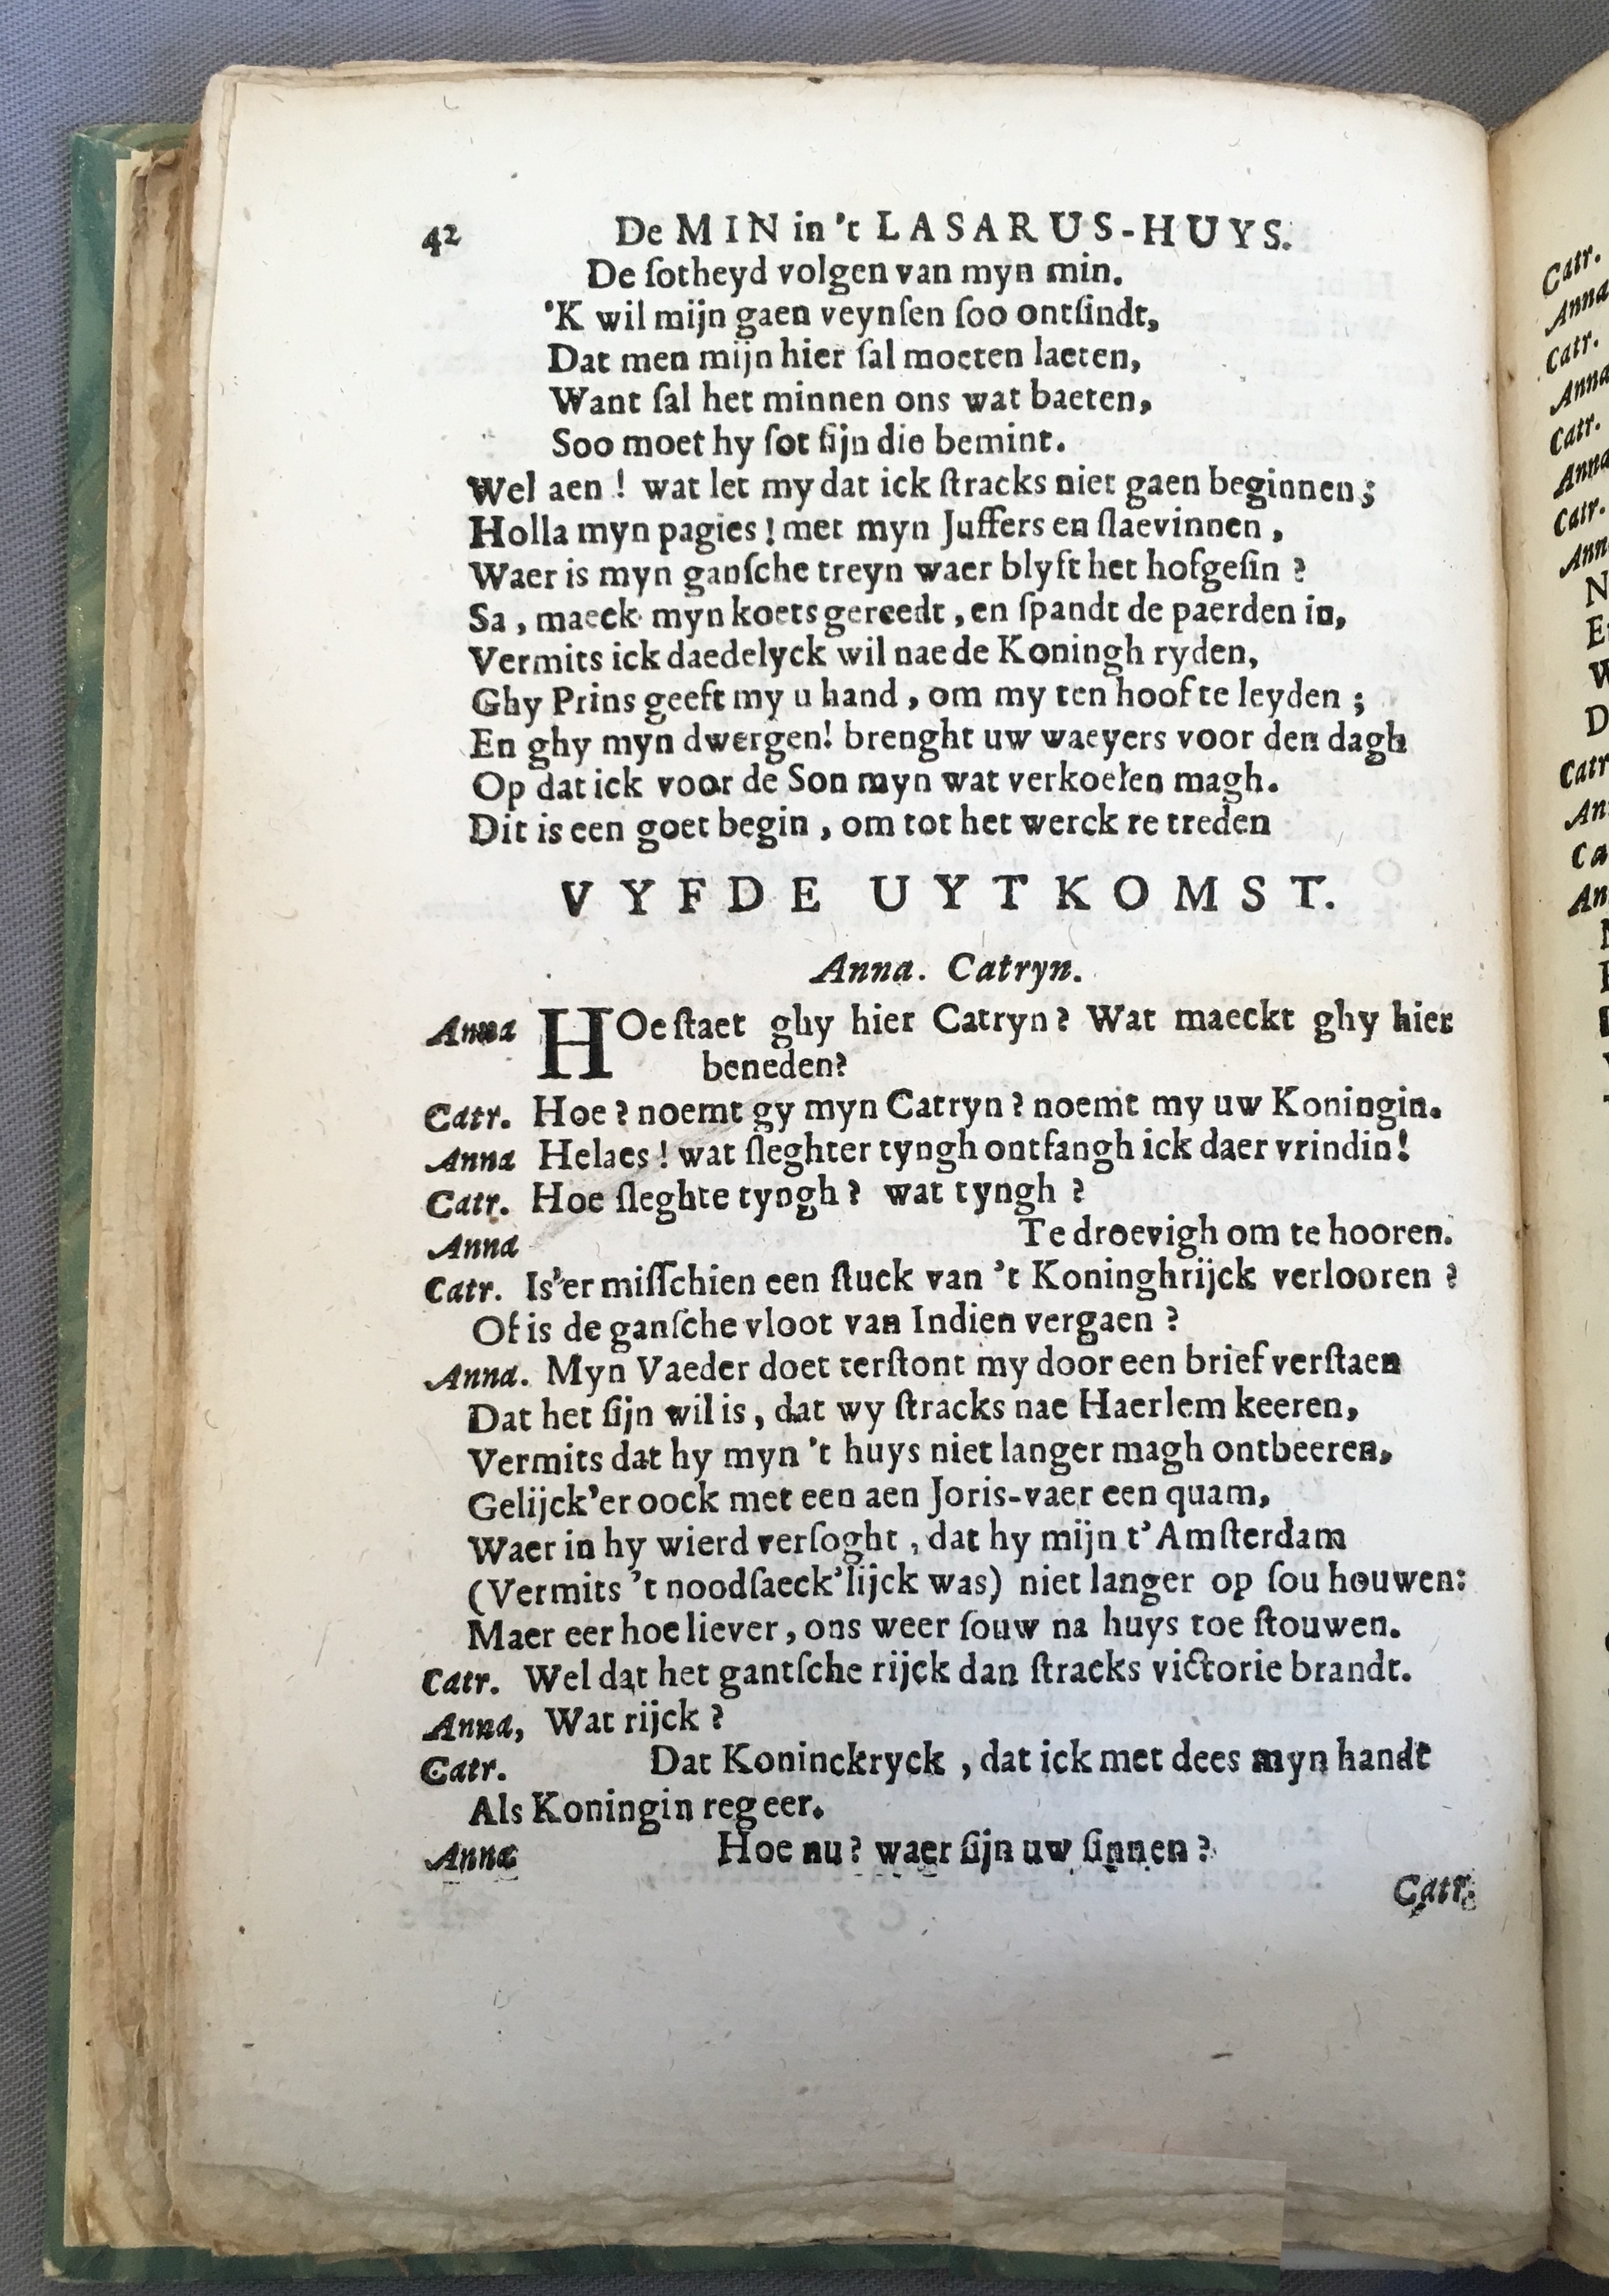 42 De MIN in 't LASARUS-HUYS.
De ſotheyd volgen van myn min.
'K wil mijn gaen veynſen ſoo ontſindt,
Dat men mijn hier ſal moeten laeten,
Want ſal het minnen ons wat baeten,
Soo moet hy ſot ſijn die bemint.
Wel aen ! wat let my dat ick ſtracks niet gaen beginnen ;
Holla myn pagies ! met myn Juffers en ſlaevinnen ,
Waer is myn ganſche treyn waer blyft het hofgeſin ?
Sa , maeck myn koets gereedt , en ſpandt de paerden in,
Vermits ick daedelyck wil nae de Koningh ryden,
Ghy Prins geeft my u hand , om my ten hoofte leyden ;
En ghy myn dwergen! brenght uw waeyers voor den dagh
Op dat ick voor de Son myn wat verkoelen magh.
Dit is een goet begin , om tot het werck te treden
VYFDE UYTKOMST.
Anna. Catryn.
Anna HOe ſtaet ghy hier Catryn? Wat maeckt ghy hier
beneden?
Catr. Hoe ? noemt gy myn Catryn ? noemt my uw Koningin.
Anna Helaes ! wat ſleghter tyngh ontfangh ick daer vrindin!
Catr. Hoe ſleghte tyngh ? wat tyngh ?
Anna Te droevigh om te hooren.
Catr. Is'er miſſchien een ſtuck van 't Koninghrijck verlooren ?
Of is de ganſche vloot van Indien vergaen ?
Anna. Myn Vaeder doet terſtont my door een brief verſtaen
Dat het ſijn wil is , dat wy ſtracks nae Haerlem keeren,
Vermits dat hy myn 't huys niet langer magh ontbeeren,
Gelijck'er oock met een aen Joris-vaer een quam,
Waer in hy wierd verſoght , dat hy mijn t'Amſterdam
(Vermits 't noodſaeck'lijck was) niet langer op ſou houwen:
Maer eer hoe liever , ons weer ſouw na huys toe ſtouwen.
Catr. Wel dat het gantſche rijck dan ſtracks victorie brandt.
Anna, Wat rijck ?
Catr. Dat Koninckryck , dat ick met dees myn handt
Als Koningin regeer.
Anna Hoe nu? waer ſijn uw ſinnen ?
Catr.
Catr.
Anna
Catr.
Anna
Catr.
Anna
Catr.
Ann
N
E
W
D
Catr
An
Ca
An